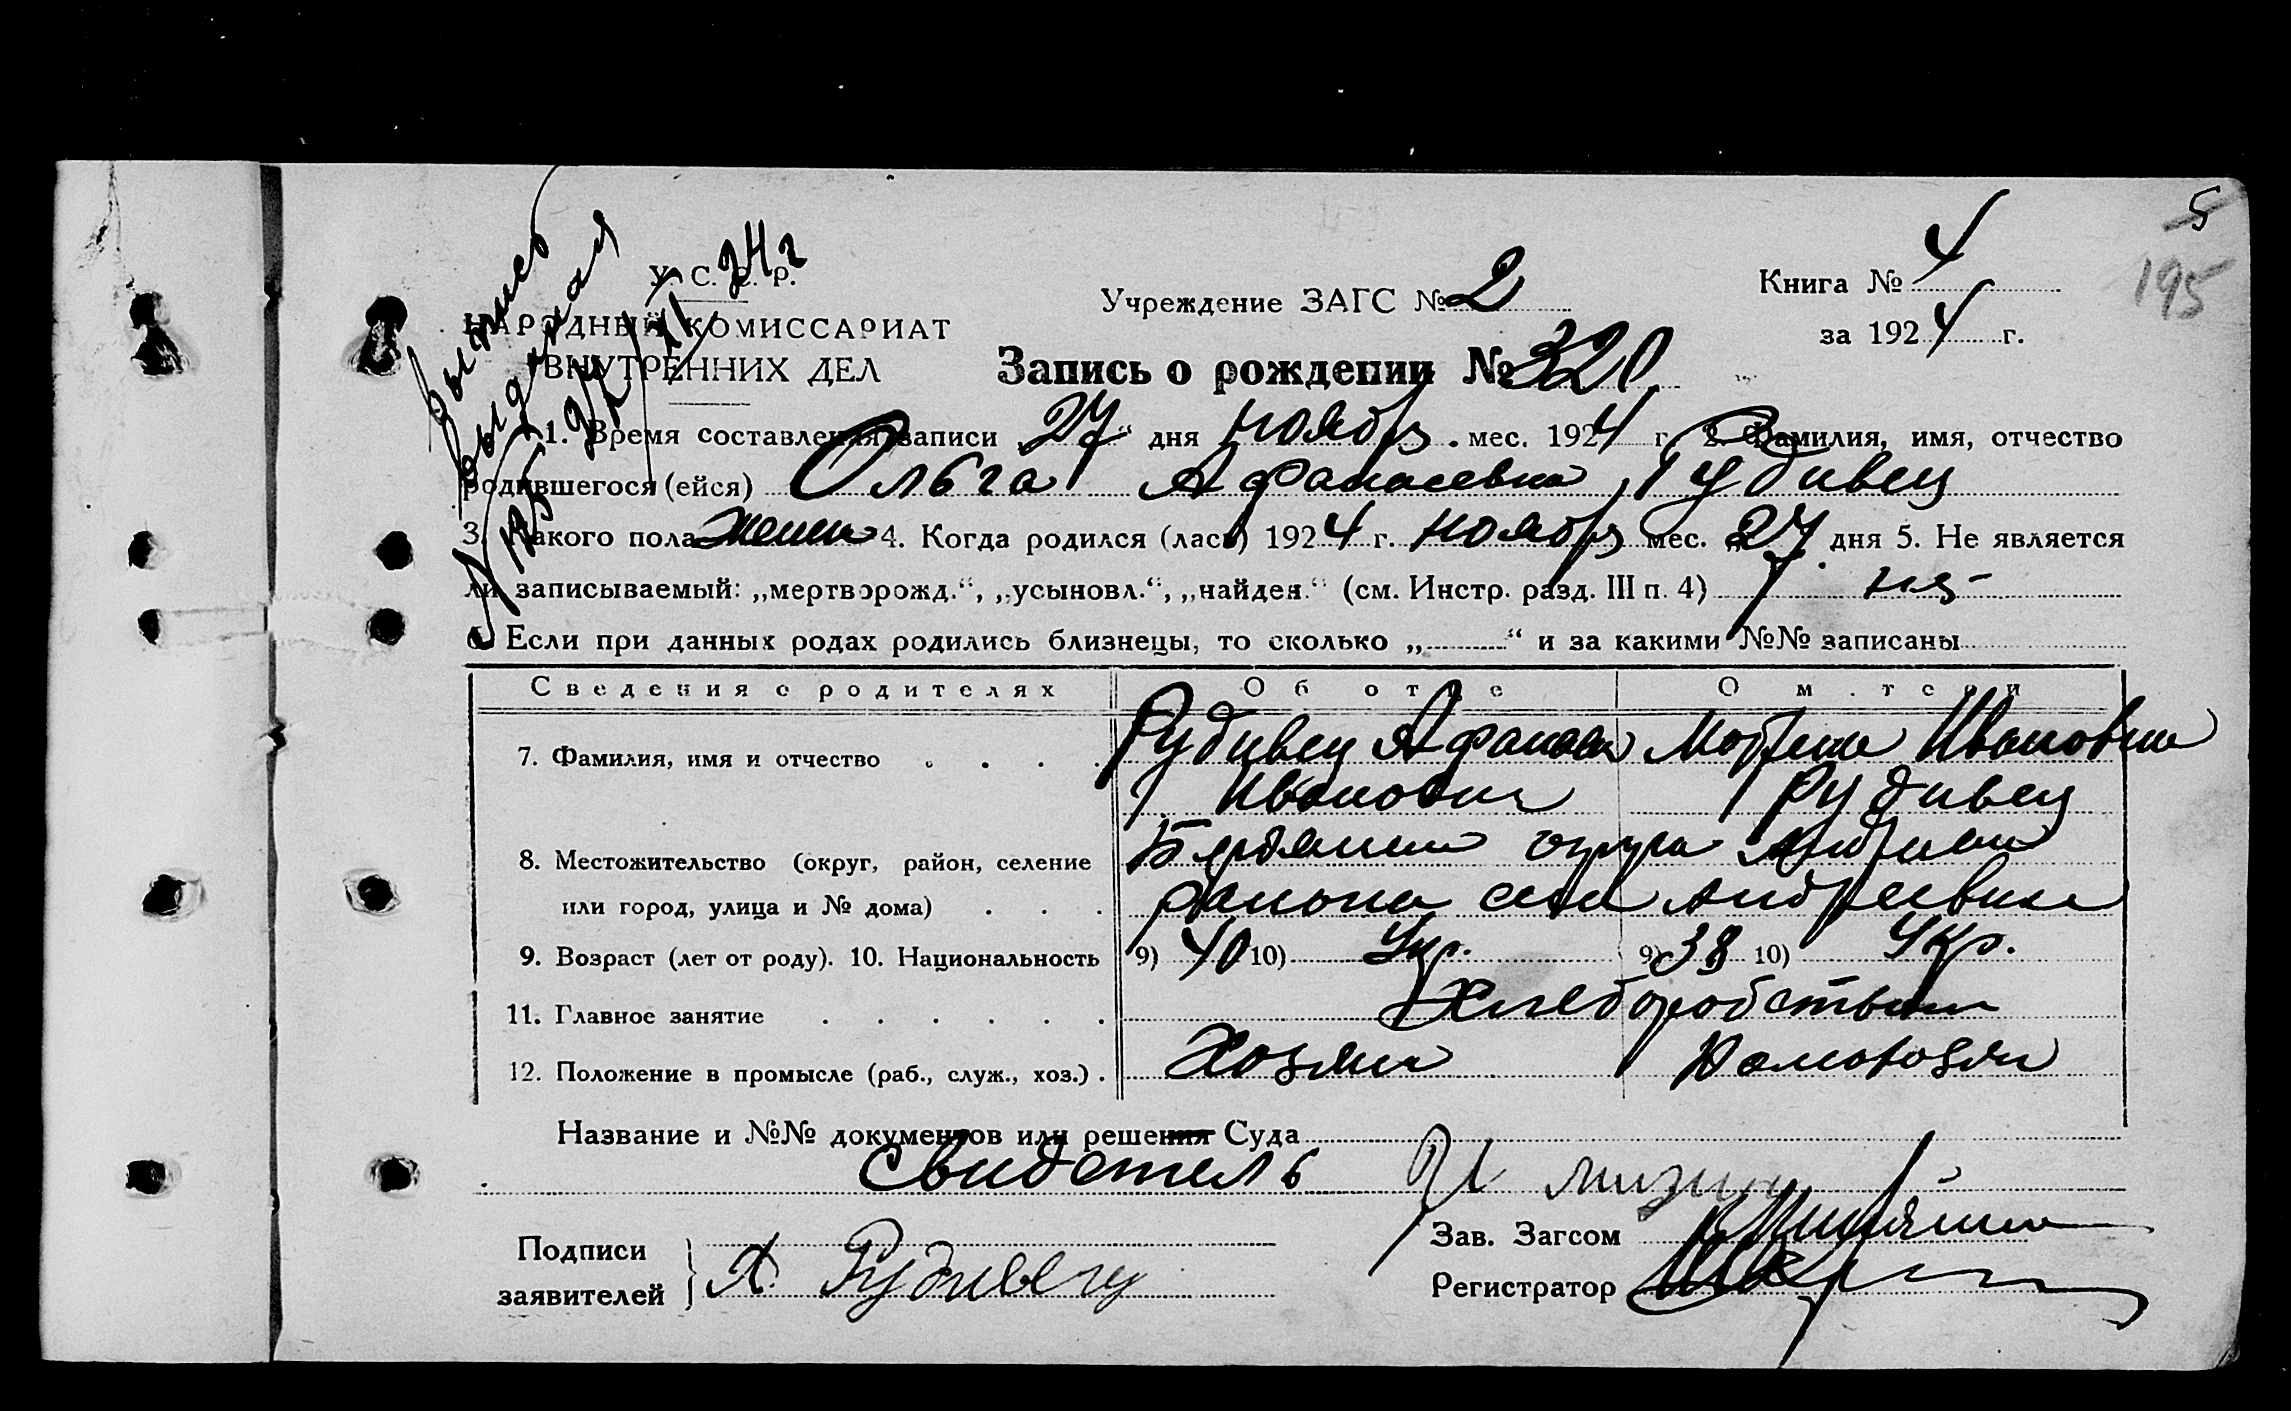 5
195
У. С. С. Р.
НАРОДНЫЙ КОМИССАРИАТ
ВНУТРЕННИХ ДЕЛ
Выпись
выданая
24 г
Учреждение ЗАГС № 2
Книга № 4
за 1924 г.
Запись о рождении № 320
1. Время составления записи „27“ дня ноябр. мес. 1924 г. 2. Фамилия, имя, отчество
родившегося (ейся) Ольга Афанасевна Рудивец
3. Какого пола женск 4. Когда родился (лась) 1924 г. ноябр мес. „27 дня 5. Не является
ли записываемый: „мертворожд.“, „усыновл.“, „найден.“ (см. Инстр. разд. III п. 4) нет
6. Если при данных родах родились близнецы, то сколько „ “ и за какими №№ записаны
Сведения о родителях Об отце О матери
7. Фамилия, имя и отчество Рудивец Афанасий Мотрона Ивановна
Иванович Рудивец
8. Местожительство (округ, район, селение Бердянский округа Андреев
или город, улица и № дома) района села Андреевки
9. Возраст (лет от роду). 10. Национальность 9) 40 10) Укр. 9) 38 10) Укр.
11. Главное занятие Хлеборобством
12. Положение в промысле (раб., служ., хоз.) Хозяин Домохозяй
Название и №№ документов или решения Суда
Свидетель
Подписи
заявителей А. Рудивец
Зав. Загсом
Регистратор